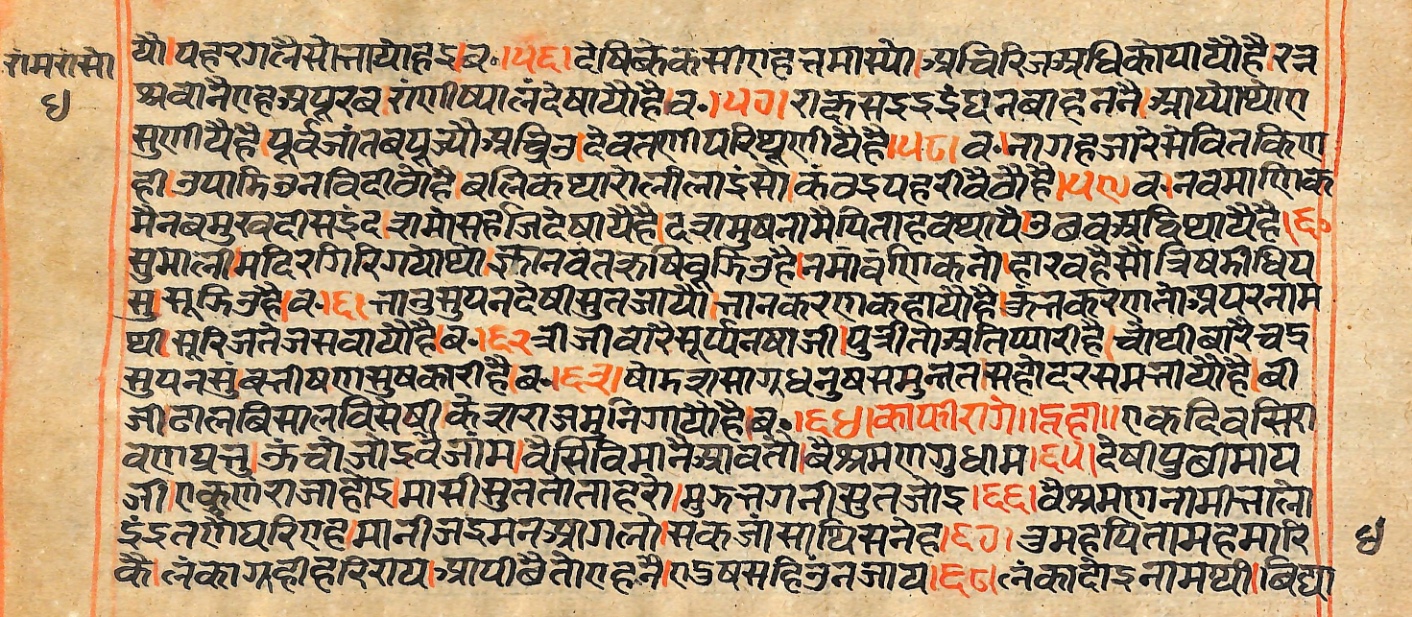 रांमरासो
४
यौ।पहरगलैसोभायोहइ।ब॰।५६।देषिकेकसीएहनमास्यो।अचिरिजअधिकोपायौहै।रत्न
श्रवानैएहअपूरब।रांणीष्यालदेषायौहै।ब॰।५७।राक्षसइइइंघनबाहननै।आप्योथोए
सुणीयैहै।पूर्वजांतबपूज्यौअच्चित्र।देवतणीपरिथुणीयैहै।५८।ब॰।नागहजारेसेवितकिण
ही।उपाडिउनविदीठौहै।बलिकंथारोलीलाइंसो।कंठइपहरीबैठौहै।५९।ब॰।नवमाणिके
मैनबमुखदीसइंद।शमोसहजिदेषायैहै।दशमुषनामैपिताहवथापै।उबवअविथायैहै।६०
सुमाली।मंदिरगिरिगयोथो।ज्ञानवंतऋषिबूझिउहै।नमांवंणिकतो।हारवहैसोत्रिषंडीधिप
सु।सूझिउहै।ब॰।६१।भानुसुपनदेषीसुतजायौ।भानकरणकहायौहै।कुंभकरणतोअपरनाम
थी।सूरिजतेजसवायौहै।ब॰।६२।त्रीजीवारैसूर्प्पनषाजी।पुत्रीतोअतिप्यारीहै।चोथीबारैचंद्र
सुपनसुंबभीषणसुषकारीहै।ब॰।६३।षोडशसागधनुषसमुन्नत।सहोदरसमभायौहै।बी
जी।ढालबिसालविसेषी।केशराजमुनिगायोहै।ब॰।६४।काफीरागे।।दूहा।।एकदिवसिरा
वणप्रभु।ऊंचोजोइवैजांम।वैसिविमानैआवतो।बैश्रमणगुधाम।६५।देषीपुछीमाय
जी।एकुणराजाहोइ।मासीसुततोताहरो।मुझभगनीसुतजोइ।६६।वैश्रमणनामीभलो
इंइतणैपरिएह।मानीजइमनआगलो।सकजांसाथिसनेह।६७।तुमहपितामहमारि
कै।लंकागृहीहरिराय।आपीबैतोएहनै।एडुषसहिउंनजाय।६८।लंकादोइनामथी।बिद्या
४